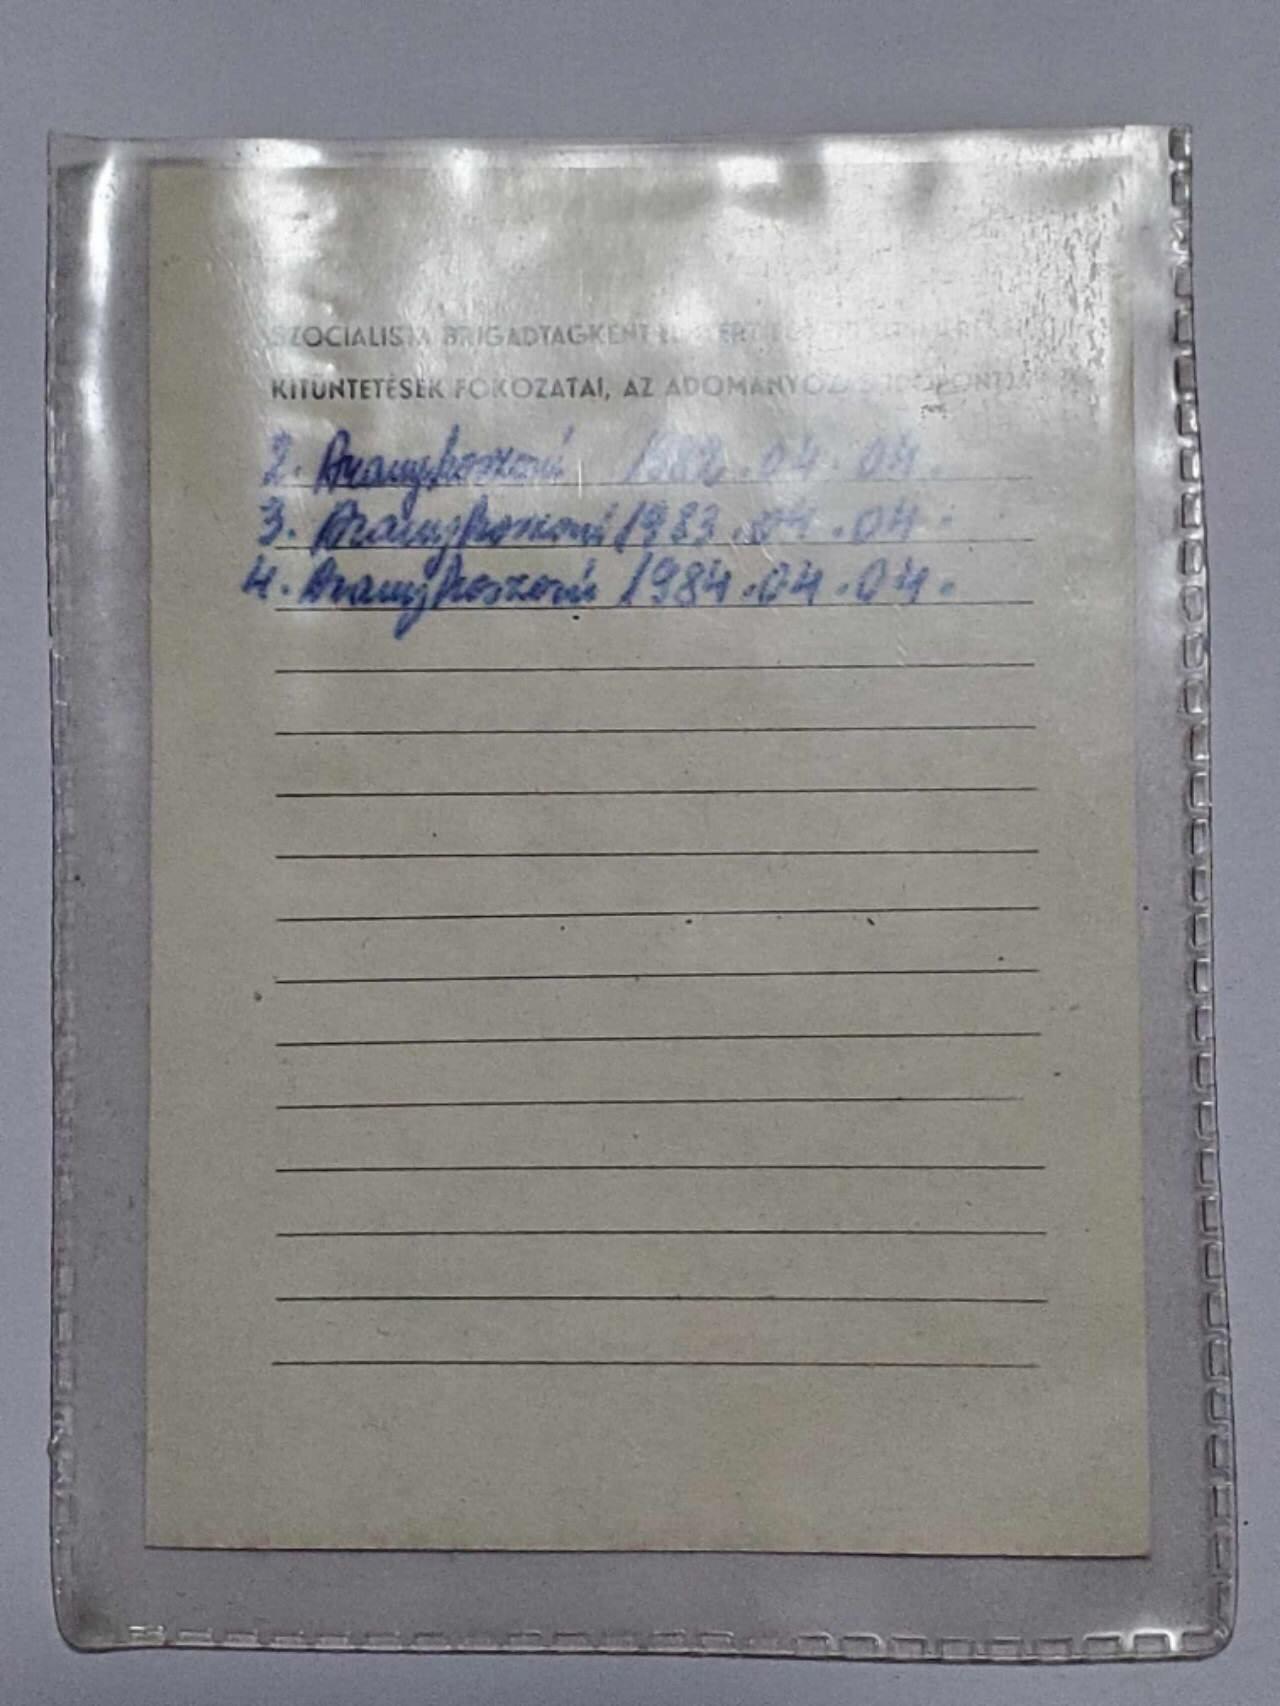 SZOCIALISTA BRIGÁDTAGKÉNT
KITÜNTETÉSEK FOKOZATAI, AZ ADOMÁNYOZÁS IDŐPONTJA
2. Aranykoszorú 1982.04.04.
3. Aranykoszorú 1983.04.04.
4. Aranykoszorú 1984.04.04.